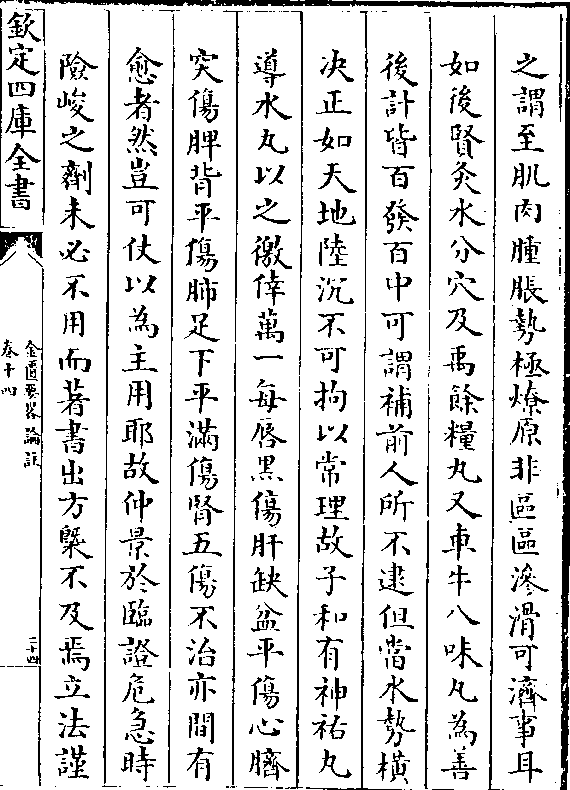 之謂至肌肉腫脹勢極燎原非區區滲滑可濟事耳
如後賢灸水分穴及禹餘糧丸又車牛八味丸為善
後計皆百發百中可謂補前人所不逮但當水勢橫
决正如天地陸沉不可拘以常理故子和有神祐丸
導水丸以之徼倖萬一每唇黑傷肝缺盆平傷心臍
突傷脾背平傷肺足下平滿傷腎五傷不治亦間有
愈者然豈可仗以為主用耶故仲景於臨證危急時
險峻之劑未必不用而著書出方槩不及焉立法謹
欽定四庫全書
金匱要畧論註
卷十四
二十四